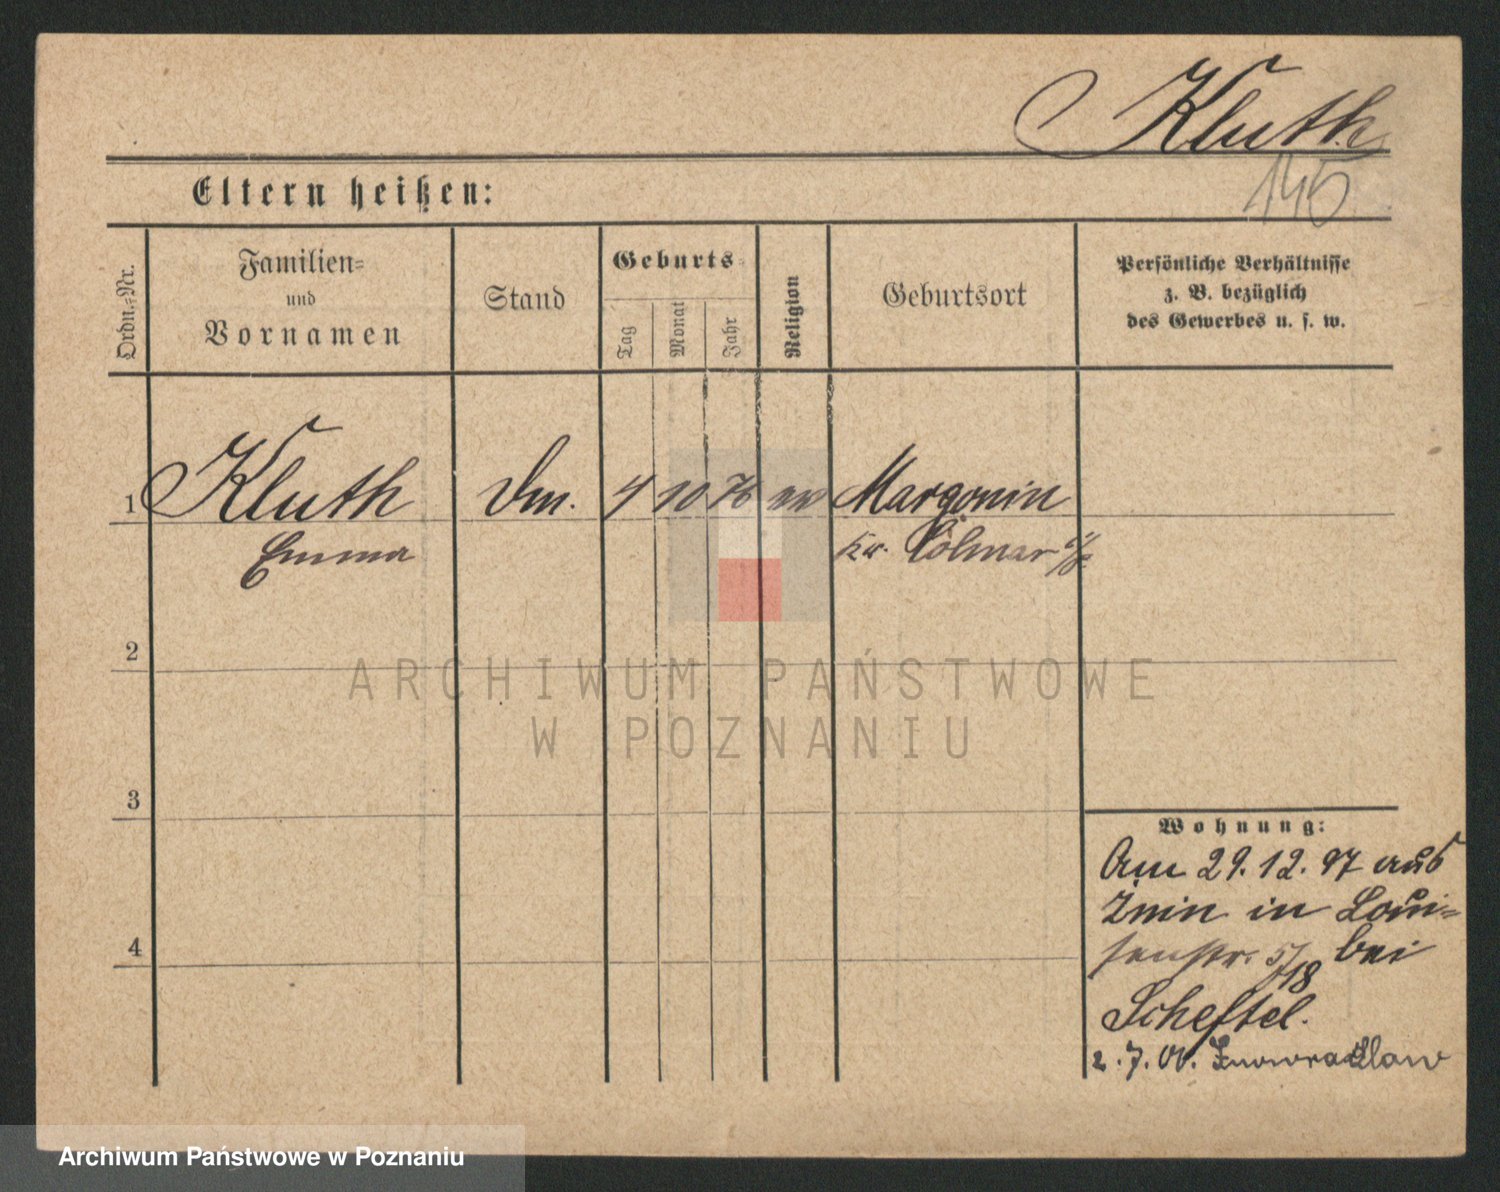 Kluth
145
Eltern heißen:
Ordn.-Nr.
Familien-
und
Vornamen
Stand
Geburts-
Tag
Monat
Jahr
Religion
Geburtsort
Persönliche Verhältnisse
z. B. bezüglich
des Gewerbes u. s. w.
1
Kluth
Emma
4
10
76
ev
Margonin
Kr. Colmar i/P.
2
3
4
Wohnung:
Am 29.12.97 aus
Znin in Loui-
senstr. 5/18 bei
Scheftel.
2.7.00. Inowrazlaw
ARCHIWUM PAŃSTWOWE
W POZNANIU
Archiwum Państwowe w Poznaniu